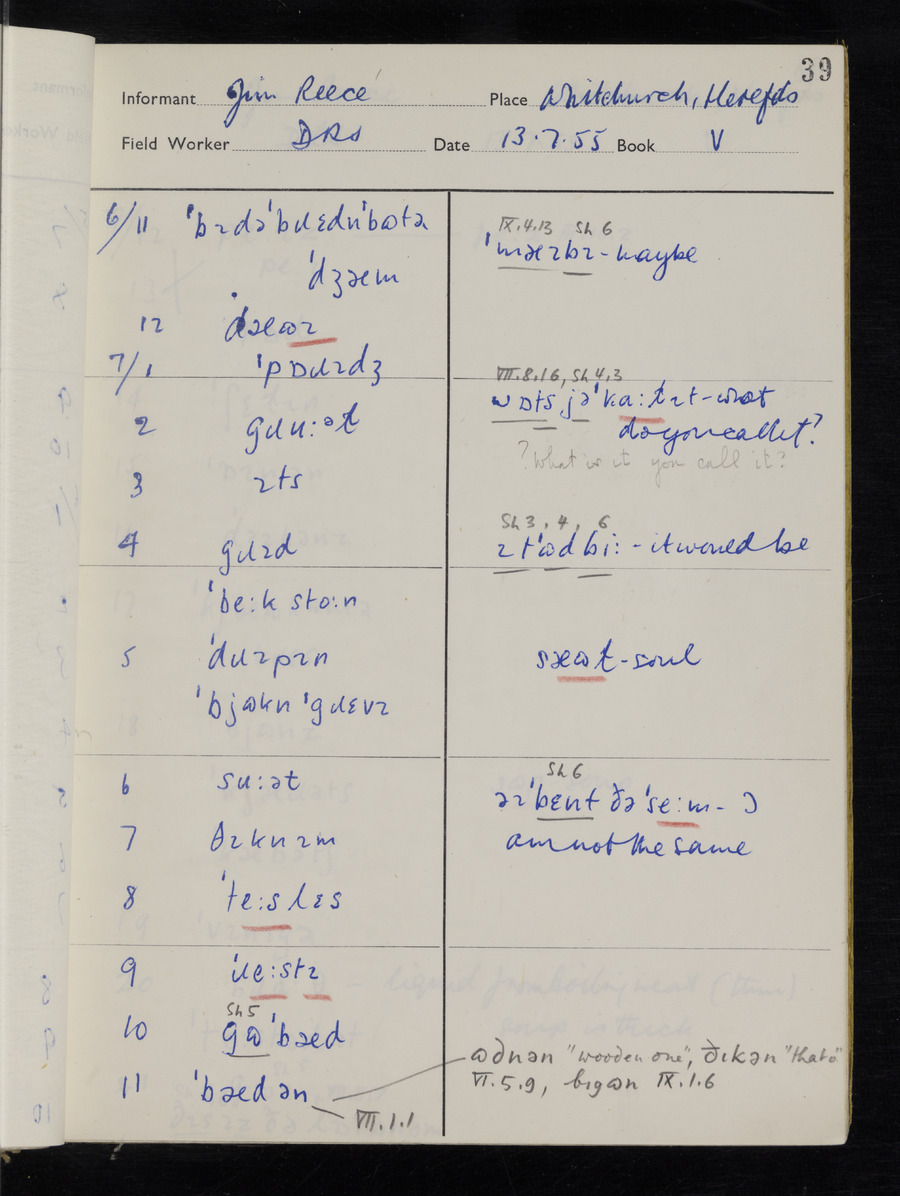 39
Informant Jim Reece Place Whitchurch, Herefds
Field Worker DRS Date 13.7.55 Book V
6/11 ˈbɹdəˈbɹɛdnˈbɷtə
ˈdʒæm
12 dʒæɷɪ
7/1 ˈpɒɹɪdʒ
2 gɹu:əɫ
3 ɪts
4 gɹɪd
ˈbe:k sto:n
5 ˈdɹɪpɪn
ˈbjɷkn ˈgɹɛvɪ
6 sɹ:əɫ
7 ðɪknɪm
8 ˈte:slɛs
9 ˈɹe:stɪ
Sh 5
10 gɷˈbæd
11 ˈbæd ən
VII.1.1
IX.4.13 Sh 6
ˈmæɪbɪ - maybe
VII.8.16, Sh 4.3
wɒts jəˈka:ɫɪt - what
do you call it?
?What is it you call it?
Sh 3, 4, 6
ɪtˈɷd bi: - it would be
sæɷɫ - soul
Sh 6
əɪˈbɛnt ðəˈse:m - I
am not the same
ɷdnən "wooden one", ðɪkən "that o"
VI.5.9, bɪgən IX.1.6